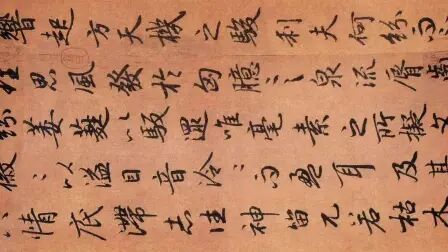 響起方天機之駿利夫何紛而
理思風發於匈臆言泉流脣齒
紛葳蕤以馺遝唯毫素之所擬文
徽〻以溢目音泠〻而盈耳及其
情底滯志往神留兀若枯木